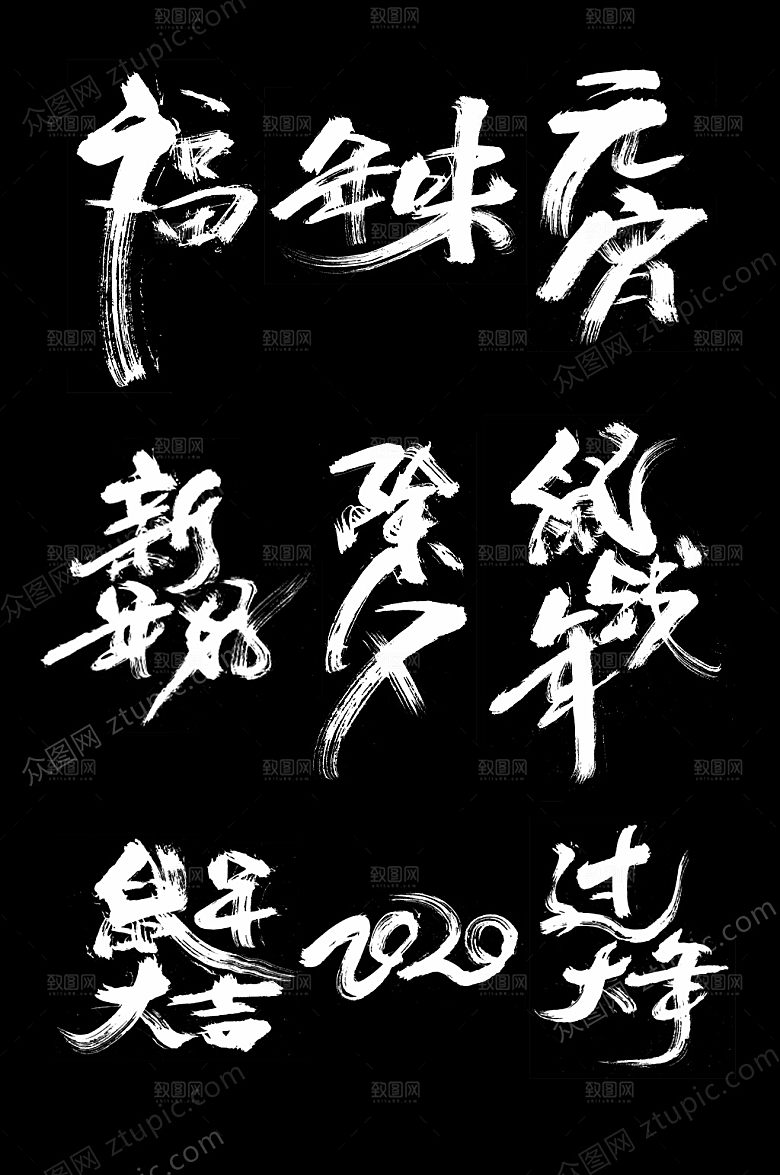 福
年味
元
宵
新
年好
除
夕
鼠
年
鼠年
大吉
2020
过
大年
众图网 ztupic.com
致图网
zhitu88.com